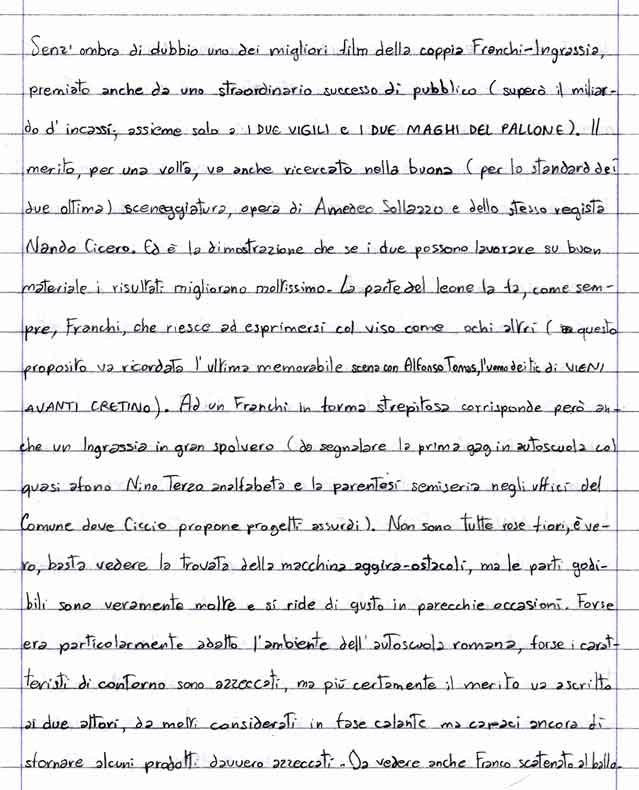 Senz' ombra di dubbio uno dei migliori film della coppia Franchi-Ingrassia,
premiato anche da uno straordinario successo di pubblico (superò il miliar-
do d'incassi, assieme solo a I DUE VIGILI e I DUE MAGHI DEL PALLONE). Il
merito, per una volta, va anche ricercato nella buona (per lo standard dei
due ottima) sceneggiatura, opera di Amedeo Sollazzo e dello stesso regista
Nando Cicero. Ed è la dimostrazione che se i due possono lavorare su buon
materiale i risultati migliorano moltissimo. La parte del leone la fa, come sem-
pre, Franchi, che riesce ad esprimersi col viso come ochi altri (a questo
proposito va ricordata l'ultima memorabile scena con Alfonso Tomas, l'uomo dei tic di VIENI
AVANTI CRETINO). Ad un Franchi in forma strepitosa corrisponde però an-
che un Ingrassia in gran spolvero (da segnalare la prima gag in autoscuola col
quasi afono Nino Terzo analfabeta e la parentesi semiseria negli uffici del
Comune dove Ciccio propone progetti assurdi). Non sono tutte rose fiori, è ve-
ro, basta vedere la trovata della macchina aggira-ostacoli, ma le parti godi-
bili sono veramente molte e si ride di gusto in parecchie occasioni. Forse
era particolarmente adatto l'ambiente dell'autoscuola romana, forse i carat-
teristi di contorno sono azzeccati, ma più certamente il merito va ascritto
ai due attori, da molti considerati in fase calante ma capaci ancora di
sfornare alcuni prodotti davvero azzeccati. Da vedere anche Franco scatenato al ballo.